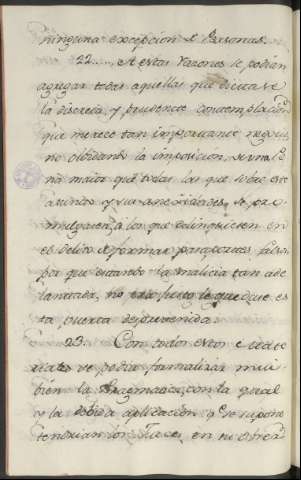 ninguna excepcion de Personas.
22..... A estas razones se podian
agregar todas aquellas que dictase
la discreta, y prudente contemplacion
que merece tan importante negocio,
no olbidando la imposicion,
no maior que todas las que sobre este
asunto y sus anexidades, se pro-
mulgaren, a los que delinquiesen en
el delito de formar pasaportes falsos
por que estando la malicia tan ade
lantada, no que es
ta puerta desprevenida.
23. Con todos estos
se podia formalizar mui
bien la Pragmatica, con la qual
y la debida aplicacion qe. se supone
tendrian los Jueces, en su